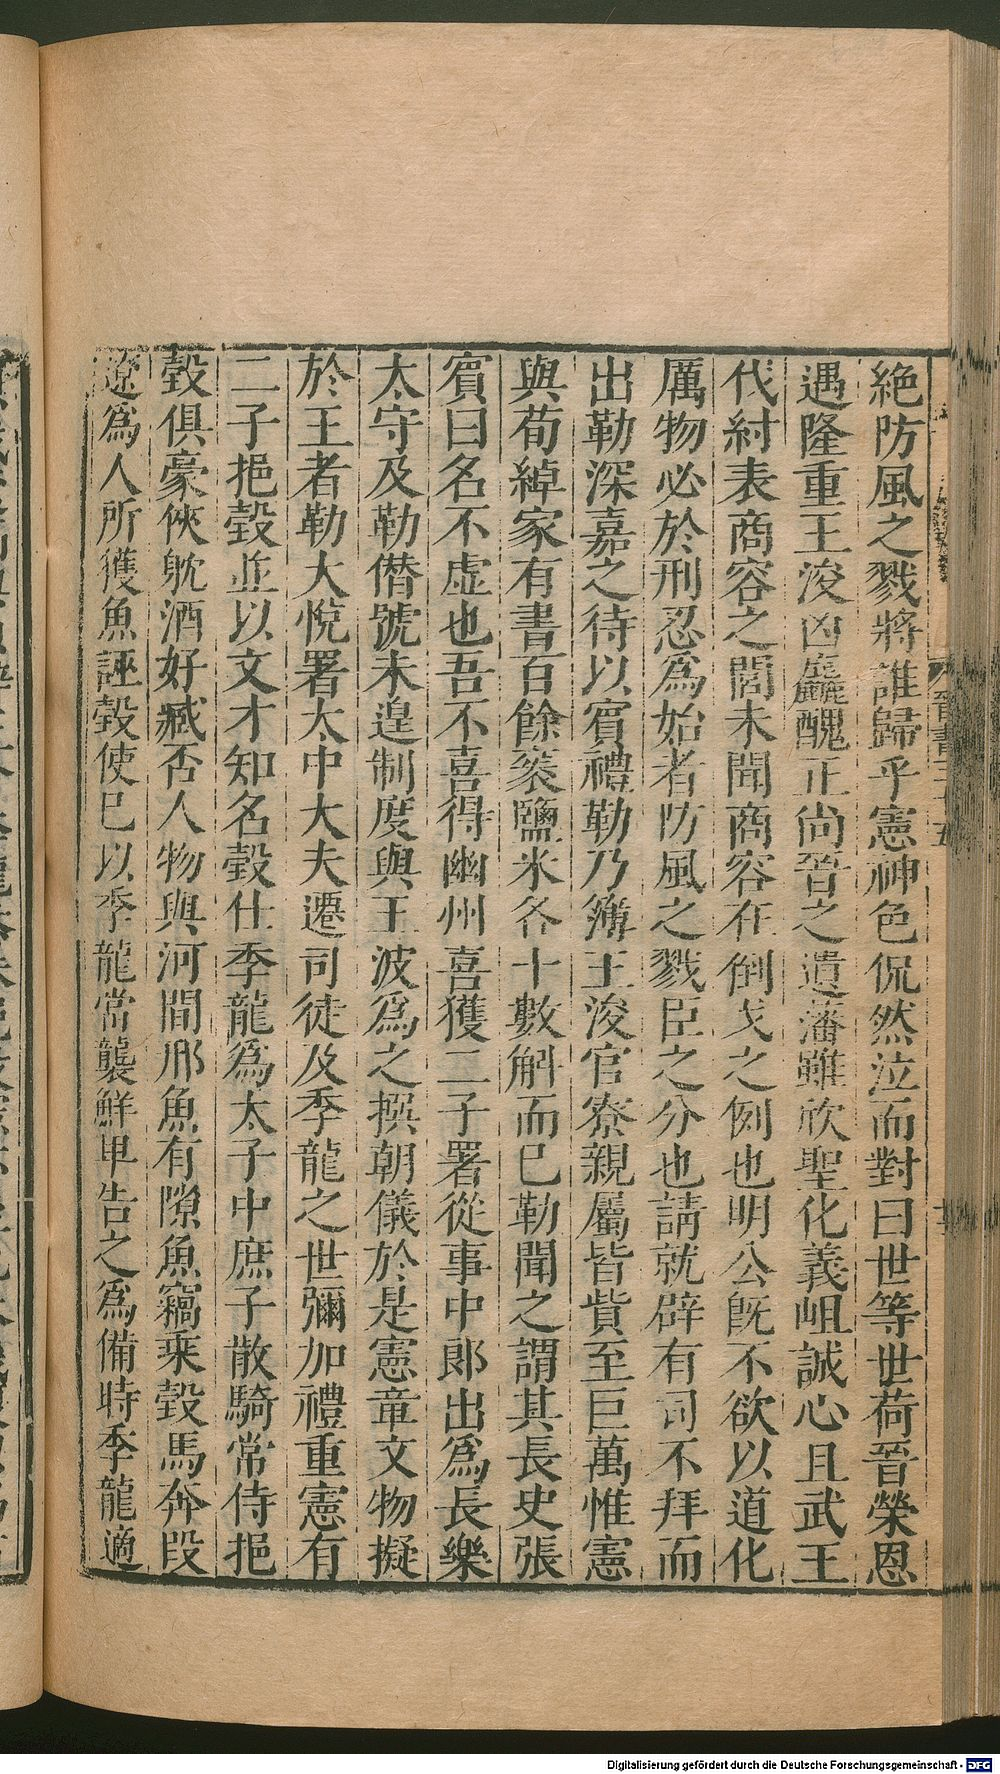 絶防風之戮將誰歸乎憲神色侃然泣而對曰世等世荷晉榮恩
遇隆重王浚凶麤醜正尙晉之遺藩雖欣聖化義岨誠心且武王
伐紂表商容之閭未聞商容在倒戈之例也明公旣不欲以道化
厲物必於刑忍爲始者防風之戮臣之分也請就辟有司不拜而
出勒深嘉之待以賓禮勒乃簿王浚官寮親屬皆貲至巨萬惟憲
與荀綽家有書百餘袠鹽米各十數斛而已勒聞之謂其長史張
賓曰名不虛也吾不喜得幽州喜獲二子署從事中郎出爲長樂
太守及勒僭號未遑制度與王波爲之撰朝儀於是憲章文物擬
於王者勒大悅署太中大夫遷司徒及季龍之世彌加禮重憲有
二子挹瑴並以文才知名瑴仕季龍爲太子中庶子散騎常侍挹
瑴俱豪俠躭酒好臧否人物與河間邢魚有隙魚竊乘瑴馬奔段
遼爲人所獲魚誣瑴使已以季龍當襲鮮卑告之爲備時季龍適
晉書三十五
Digitalisierung gefördert durch die Deutsche Forschungsgemeinschaft - DFG